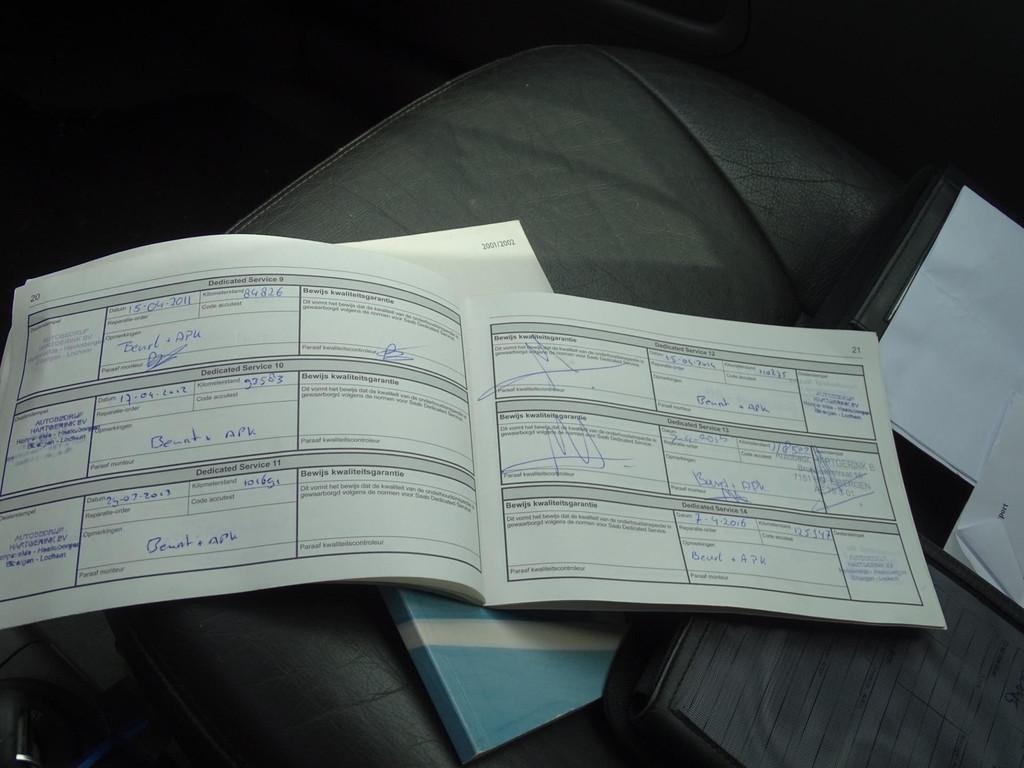 2001/2002
20
Dedicated Service 9
Dealerstempel
AUTOBEDRIJF
HARTGERINK BV
Datum 15-04-2011
Kilometerstand 84826
Reparatie-order
Code accutest
Opmerkingen
Beurt + APK
Paraaf monteur
Bewijs kwaliteitsgarantie
Dit vormt het bewijs dat de kwaliteit van de onderhoudsinspectie is
gewaarborgd volgens de normen voor Saab Dedicated Service
Paraaf kwaliteitscontroleur
Dedicated Service 10
Dealerstempel
AUTOBEDRIJF
HARTGERINK BV
Datum 17-04-2012
Kilometerstand 92583
Reparatie-order
Code accutest
Opmerkingen
Beurt + APK
Paraaf monteur
Bewijs kwaliteitsgarantie
Dit vormt het bewijs dat de kwaliteit van de onderhoudsinspectie is
gewaarborgd volgens de normen voor Saab Dedicated Service
Paraaf kwaliteitscontroleur
Dedicated Service 11
Dealerstempel
AUTOBEDRIJF
HARTGERINK BV
Datum
Kilometerstand
Reparatie-order
Code accutest
Opmerkingen
Beurt + APK
Paraaf monteur
Bewijs kwaliteitsgarantie
Dit vormt het bewijs dat de kwaliteit van de onderhoudsinspectie is
gewaarborgd volgens de normen voor Saab Dedicated Service
Paraaf kwaliteitscontroleur
21
Dedicated Service 12
Bewijs kwaliteitsgarantie
Dit vormt het bewijs dat de kwaliteit van de onderhoudsinspectie is
gewaarborgd volgens de normen voor Saab Dedicated Service
Paraaf kwaliteitscontroleur
Datum
Kilometerstand
Reparatie-order
Code accutest
Opmerkingen
Beurt + APK
Paraaf monteur
Dealerstempel
AUTOBEDRIJF
HARTGERINK BV
Dedicated Service 13
Bewijs kwaliteitsgarantie
Dit vormt het bewijs dat de kwaliteit van de onderhoudsinspectie is
gewaarborgd volgens de normen voor Saab Dedicated Service
Paraaf kwaliteitscontroleur
Datum
Kilometerstand
Reparatie-order
Opmerkingen
Beurt + APK
Paraaf monteur
HARTGERINK B
Dedicated Service 14
Bewijs kwaliteitsgarantie
Dit vormt het bewijs dat de kwaliteit van de onderhoudsinspectie is
gewaarborgd volgens de normen voor Saab Dedicated Service
Paraaf kwaliteitscontroleur
Datum 7-4-2016
Kilometerstand 125347
Reparatie-order
Code accutest
Opmerkingen
Beurt + APK
Paraaf monteur
Dealerstempel